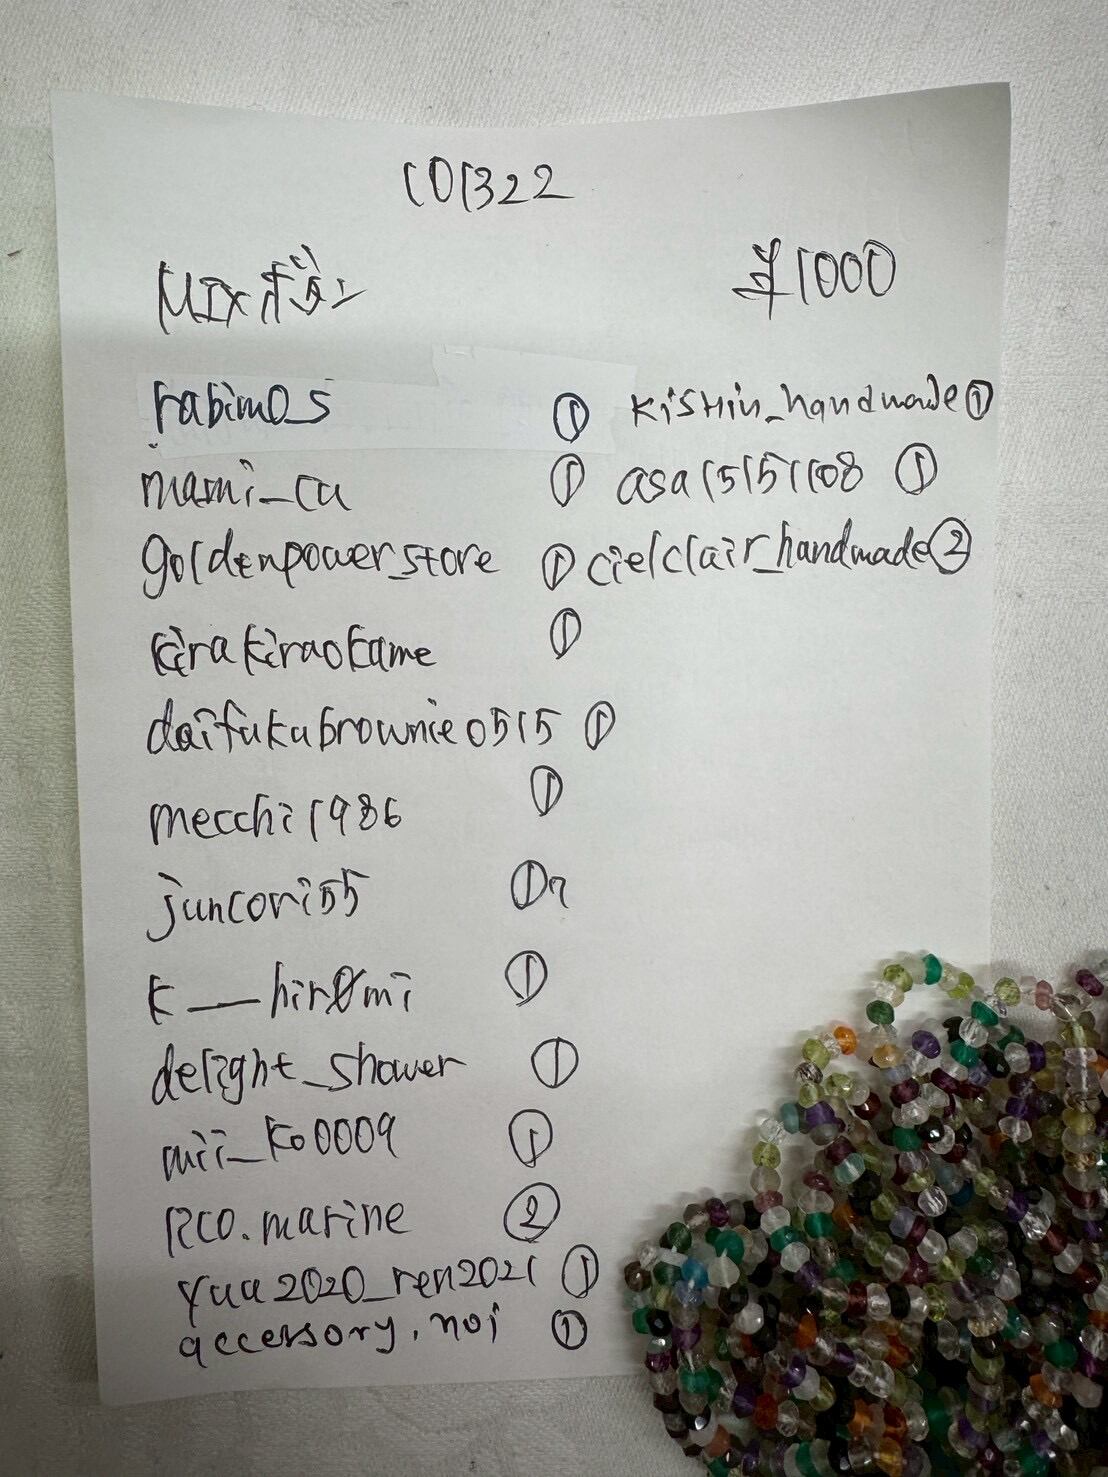 101322
MIXボタン ¥1000
rabimo_s ①
mami_cu ①
goldenpower_store ①
kirakiraokame ①
daifukubrownie0515 ①
mecchi1986 ①
juncori55 ①
k__hir0mi ①
delight_shower ①
mii_ko0009 ①
rco.marine ②
yua2020_ren2021 ①
accessory.noi ①
kishin_handmade ①
asa15151108 ①
cielclair_handmade ②